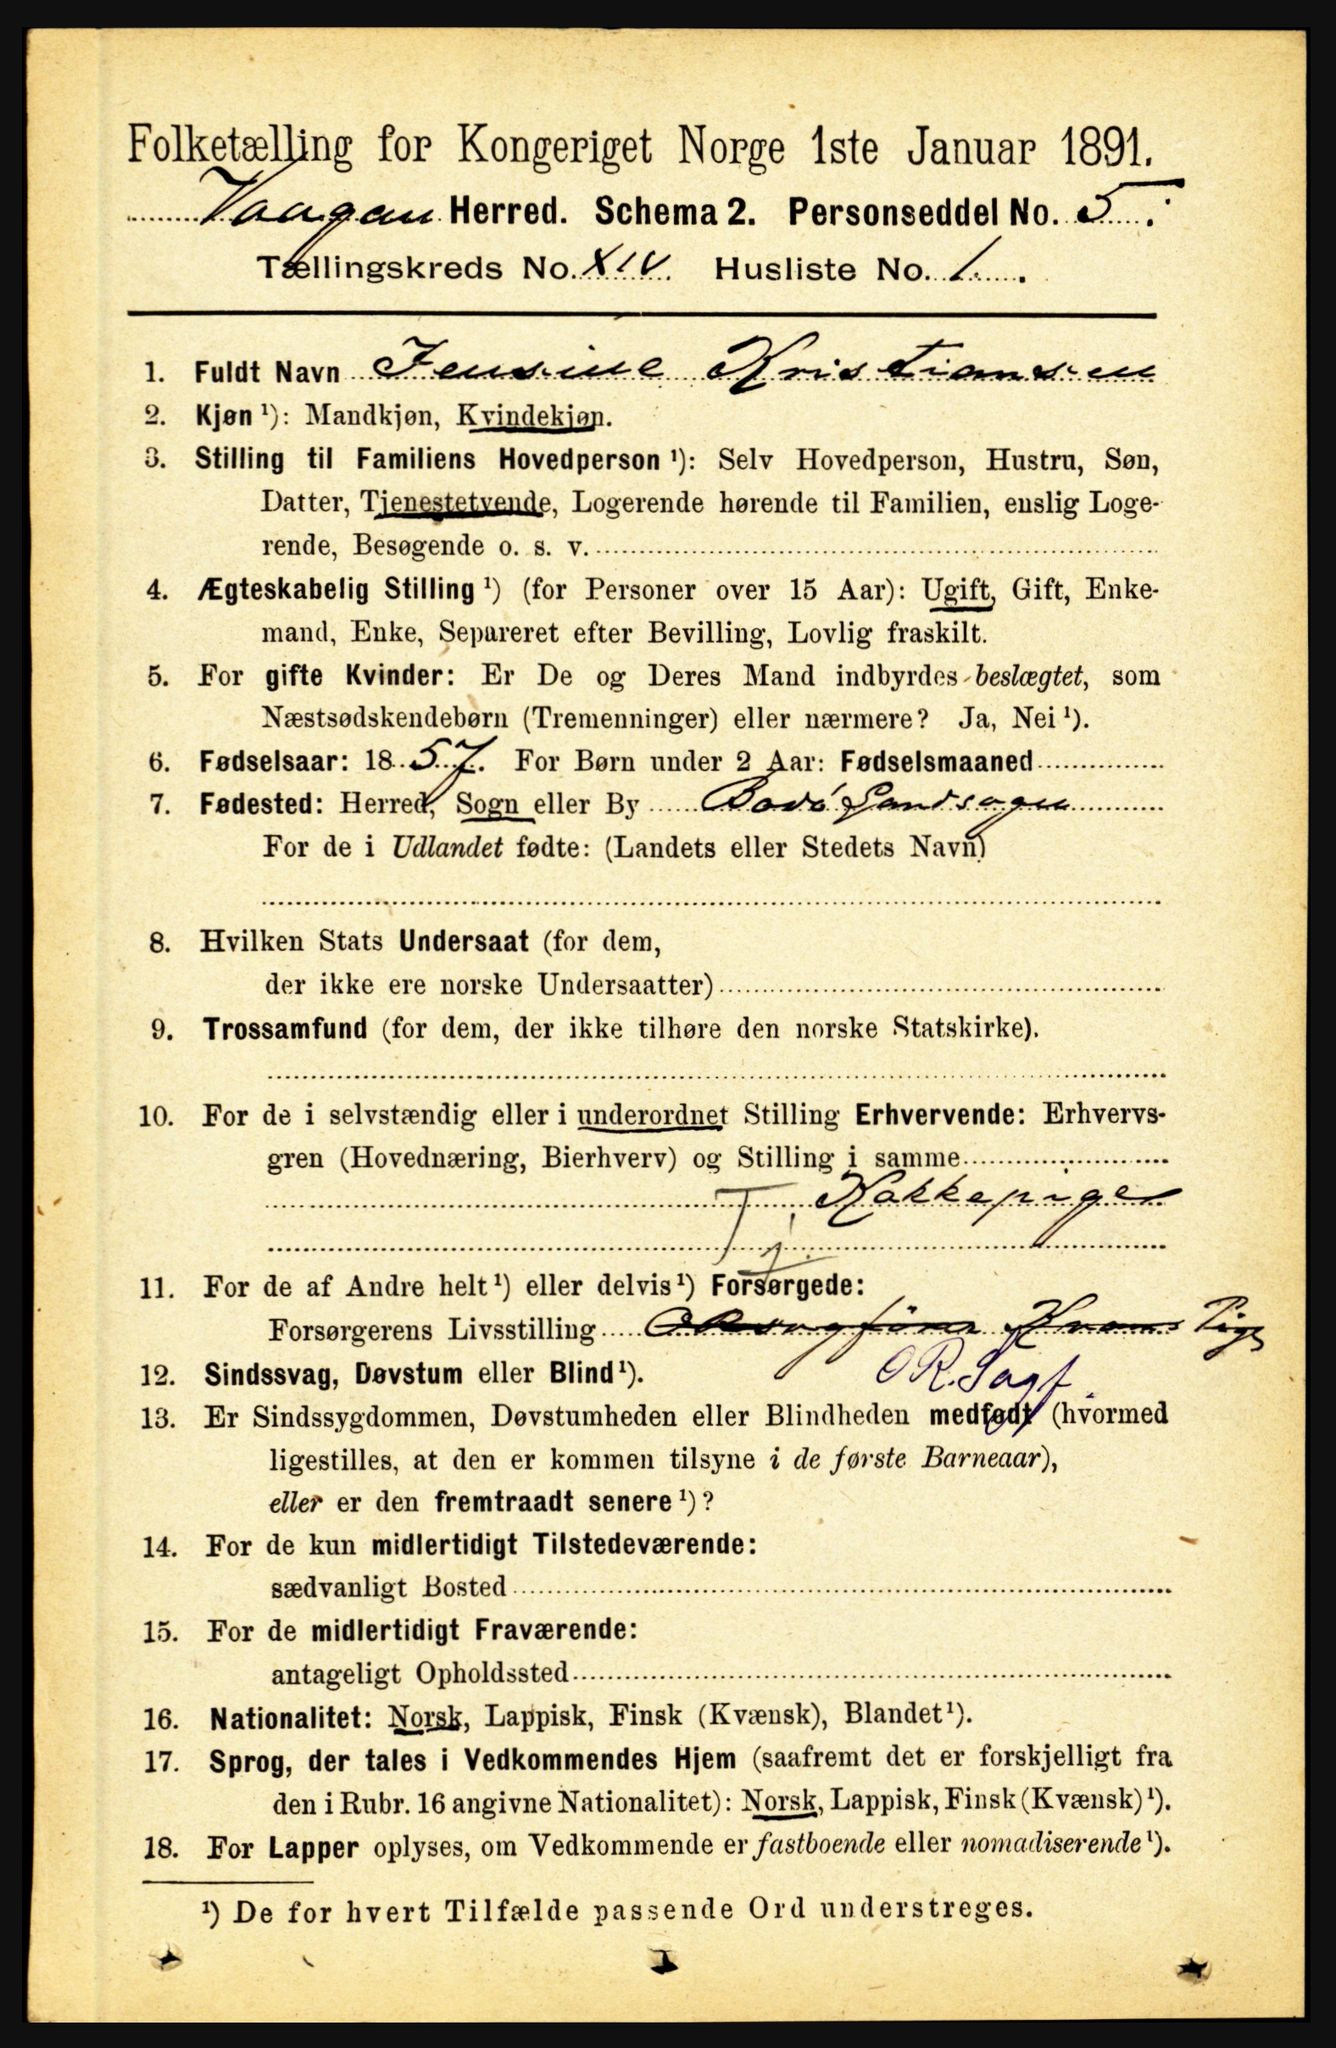 Folketælling for Kongeriget Norge 1ste Januar 1891.
Vaagan Herred. Schema 2. Personseddel No. 5.
Tællingskreds No. XIV. Husliste No. 1.
1. Fuldt Navn Jensine Kristiansen
2. Kjøn ¹): Mandkjøn, Kvindekjøn.
3. Stilling til Familiens Hovedperson ¹): Selv Hovedperson, Hustru, Søn,
Datter, Tjenestetyende, Logerende hørende til Familien, enslig Loge-
rende, Besøgende o. s. v.
4. Ægteskabelig Stilling ¹) (for Personer over 15 Aar): Ugift, Gift, Enke-
mand, Enke, Separeret efter Bevilling, Lovlig fraskilt.
5. For gifte Kvinder: Er De og Deres Mand indbyrdes beslægtet, som
Næstsødskendebørn (Tremenninger) eller nærmere? Ja, Nei ¹).
6. Fødselsaar: 1857. For Børn under 2 Aar: Fødselsmaaned
7. Fødested: Herred, Sogn eller By Bodö Landsogn
For de i Udlandet fødte: (Landets eller Stedets Navn)
8. Hvilken Stats Undersaat (for dem,
der ikke ere norske Undersaatter)
9. Trossamfund (for dem, der ikke tilhøre den norske Statskirke).
10. For de i selvstændig eller i underordnet Stilling Erhvervende: Erhvervs-
gren (Hovednæring, Bierhverv) og Stilling i samme
Kokkepige
Tj.
11. For de af Andre helt ¹) eller delvis ¹) Forsørgede:
Forsørgerens Livsstilling Pige
12. Sindssvag, Døvstum eller Blind ¹). OR.Sagf
13. Er Sindssygdommen, Døvstumheden eller Blindheden medfødt (hvormed
ligestilles, at den er kommen tilsyne i de første Barneaar),
eller er den fremtraadt senere ¹)?
14. For de kun midlertidigt Tilstedeværende:
sædvanligt Bosted
15. For de midlertidigt Fraværende:
antageligt Opholdssted
16. Nationalitet: Norsk, Lappisk, Finsk (Kvænsk), Blandet ¹).
17. Sprog, der tales i Vedkommendes Hjem (saafremt det er forskjelligt fra
den i Rubr. 16 angivne Nationalitet): Norsk, Lappisk, Finsk (Kvænsk) ¹).
18. For Lapper oplyses, om Vedkommende er fastboende eller nomadiserende ¹).
¹) De for hvert Tilfælde passende Ord understreges.